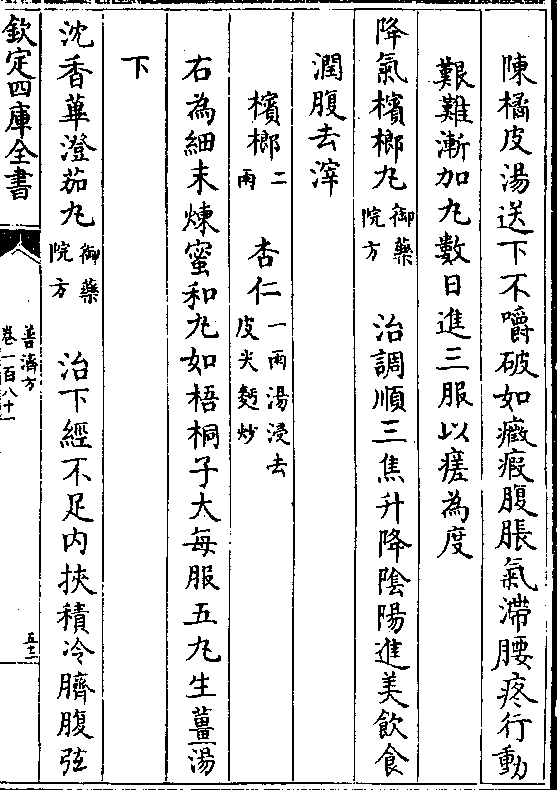 陳橘皮湯送下不嚼破如癥瘕腹脹氣滯腰疼行動
艱難漸加丸數日進三服以瘥為度
降氣檳榔丸御藥院方 治調順三焦升降隂陽進美飲食
潤腹去滓
檳榔二兩 杏仁一兩湯浸去皮尖麪炒
右為細末煉蜜和丸如梧桐子大每服五丸生薑湯
下
沈香蓽澄茄丸御藥院方 治下經不足内挾積冷臍腹弦
欽定四庫全書
普濟方
卷一百八十一